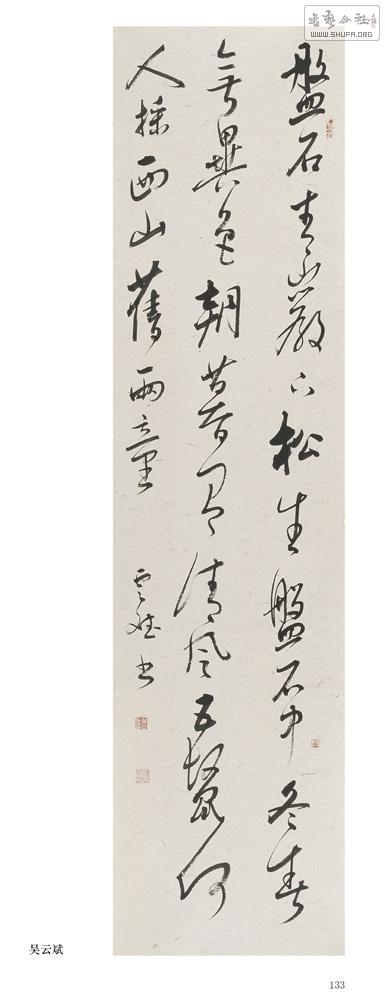 书艺公社
WWW.SHUFA.ORG
盤石青巖下松生盤石中冬春
無異色朝暮有清風五鬣何
人採西山舊兩童
云斌书
吴云斌
133